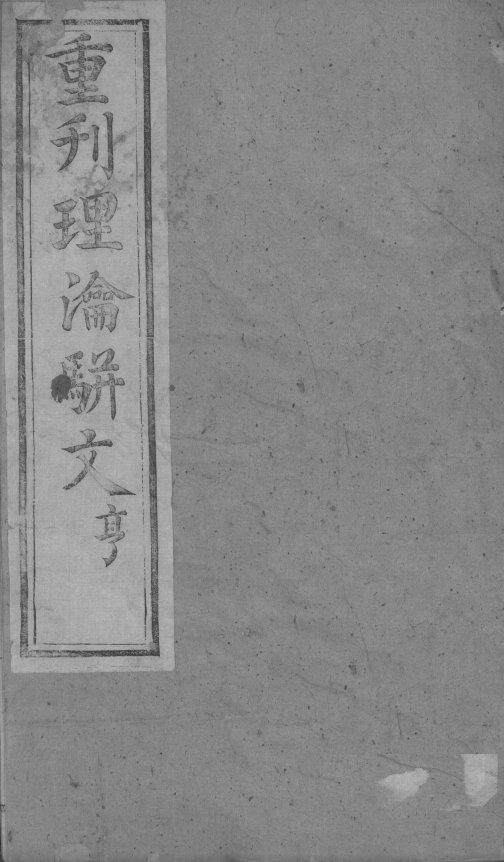 重刊理瀹駢文亨